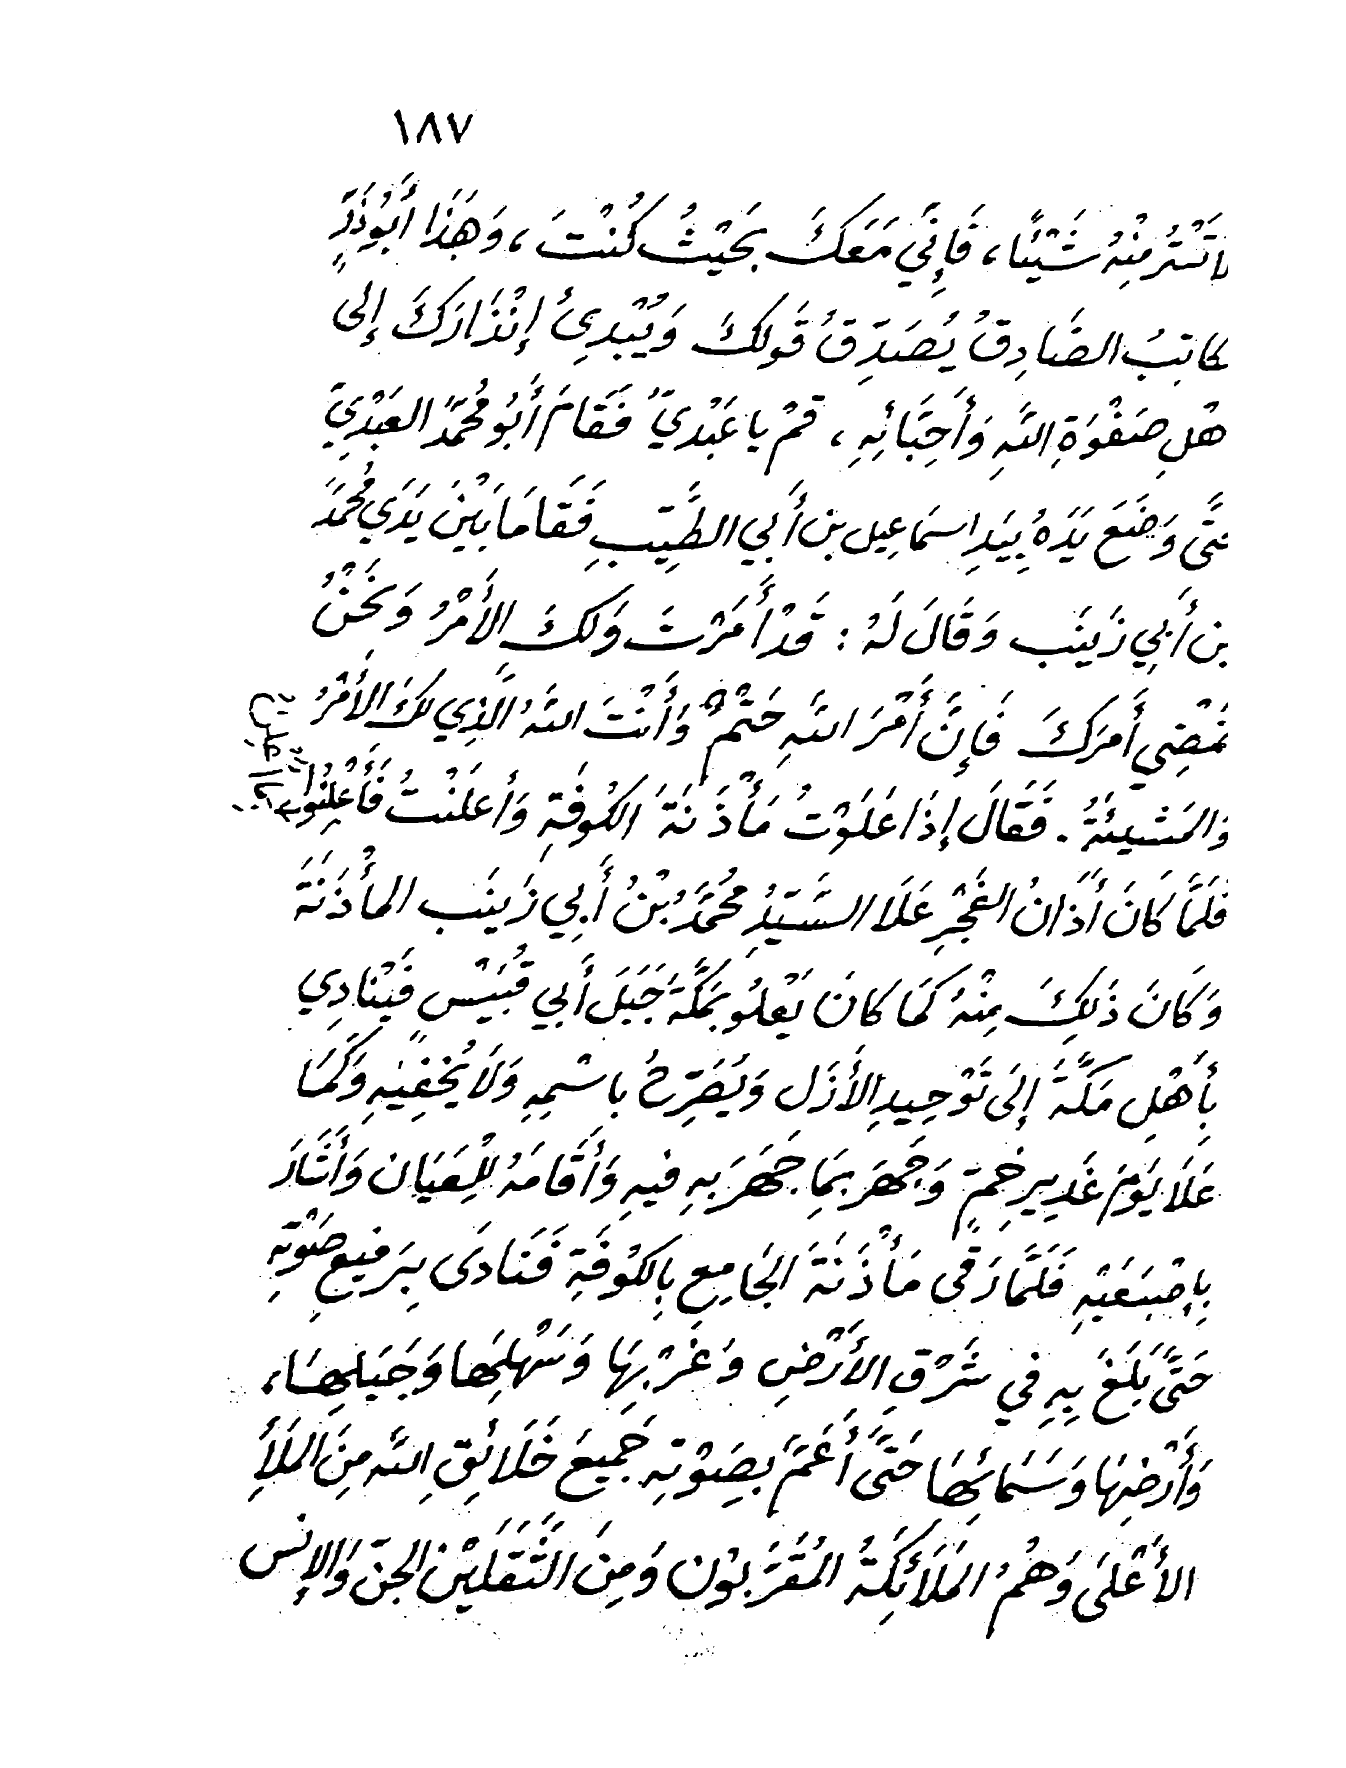 ١٨٧
لَا تَسْتُرْ مِنْهُ شَيْئًا، فَإِنِّي مَعَكَ بِحَيْثُ كُنْتَ، وَهَذَا أَبُو ذَرٍّ
كَاتِبُ الصَّادِقُ يُصَدِّقُ قَولَكَ وَيُبْدِئُ إِنْذَارَكَ إِلَى
أَهْلِ صَفْوَةِ اللَّهِ وَأَحِبَّائِهِ، قُمْ يا عَبْدِيّ فَقَامَ أَبُو مُحَمَّدُ العَبْدِيّ
حَتَّى وَضَعَ يَدَهُ بِيَدِ اسمَاعِيل بن أَبِي الطَّيِّبِ فَقَامَا بَيْنَ يَدَي مُحَمَّدَ
بن أَبِي زَينَب وَقَالَ لَهُ : قَدْ أَمَرْتَ وَلَكَ الأَمْرُ وَنَحْنُ
نَمْضِي أَمرَكَ فَإِنَّ أَمْرَ اللَّهِ حَتْمٌ وَأَنْتَ اللَّهُ الَّذِي لَكَ الأَمْرُ
وَالمَشِيئَةُ . فَقَالَ إِذَا عَلَوْتُ مَأْذَنَةَ الكُوفَةِ وَأَعلَنْتُ فَأَعْلِنُوا
فَلَمَّا كَانَ أَذَانُ الفَجْرِ عَلَا السَّيِّدُ مُحَمَّدُ بْنُ أَبِي زَينَب المأْذَنَةَ
وَكَانَ ذَلِكَ مِنْهُ كَمَا كَانَ يَعْلُو بِمَكَّةَ جَبَلَ أَبِي قُبَيْسٍ فَيْنَادِي
بِأَهْلِ مَكَّةَ إِلَى تَوْحِيدِ الأَزَلِ وَيُصَرِّحُ بِاسْمِهِ وَلَا يُخفِيْهِ وَكَمَا
عَلَا يَوْمَ غَدِيرِ خُمٍّ وَجَهَرَ بِمَا جَهَرَ بِهِ فيهِ وَأَقَامَهُ لِلْعَيَانِ وَأَشَارَ
بِإِصْبَعَيْهِ فَلَمَّا رَقَى مَأْذَنَةَ الجَامِعِ بِالكُوفَةِ فَنَادَى بِرَفيعِ صَوْتِهِ
حَتَّى بَلَغَ بِهِ فِي شَرْقِ الأَرْضِ وَغَرْبِهَا وَسَهْلِهَا وَجَبَلِهَا،
وَأَرْضِهَا وَسَمَائِهَا حَتَّى أَعَمَّ بِصَوْتِهِ جَمِيعَ خَلَائِقِ اللَّهِ مِنَ المَلَأِ
الأَعْلَى وَهُمُ المَلَائِكَةُ المُقَرَّبُونَ وَمِنَ الثَّقَلَيْنِ الجِنّ وَالإِنس